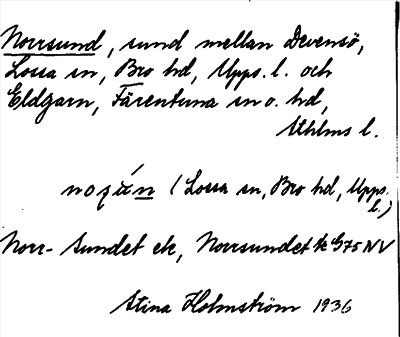 Norrsund, sund mellan Devensö,
Lossa sn, Bro hd, Upps. l. och
Eldgarn, Färentuna sn o. hd,
Sthlms l.
(Lossa sn, Bro hd, Upps.
l.)
Norr-Sundet ek, Norrsundet k G75 NV
Stina Holmström 1936